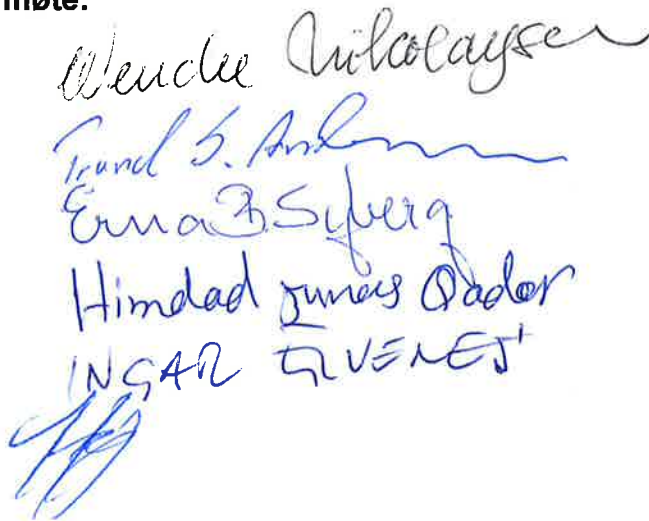 møte.
Wenche Nikolaysen
Trond S.
Erna B. Syberg
Himdad Qader
INGAR